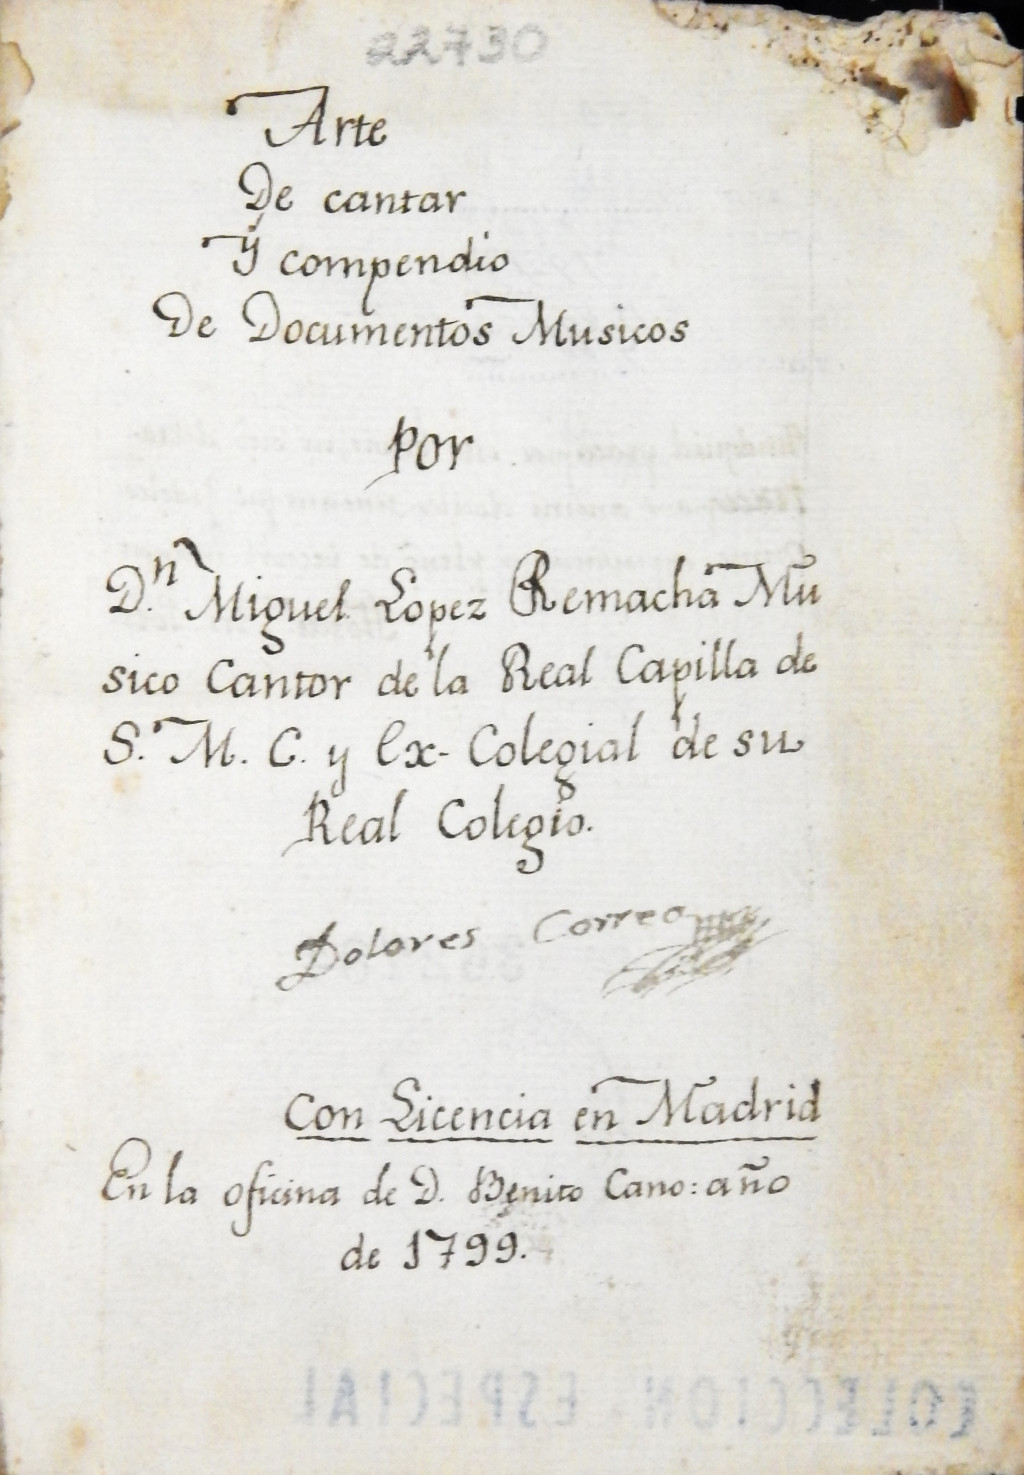 22730
Arte
De cantar
y compendio
De Documentos Musicos
Por
D.n Miguel Lopez Remacha Mu
sico Cantor de la Real Capilla de
S. M. C. y Ex-Colegial de su
Real Colegio.
Dolores Correa
Con Licencia en Madrid
En la oficina de D. Benito Cano: año
de 1799.
COLECCION ESPECIAL